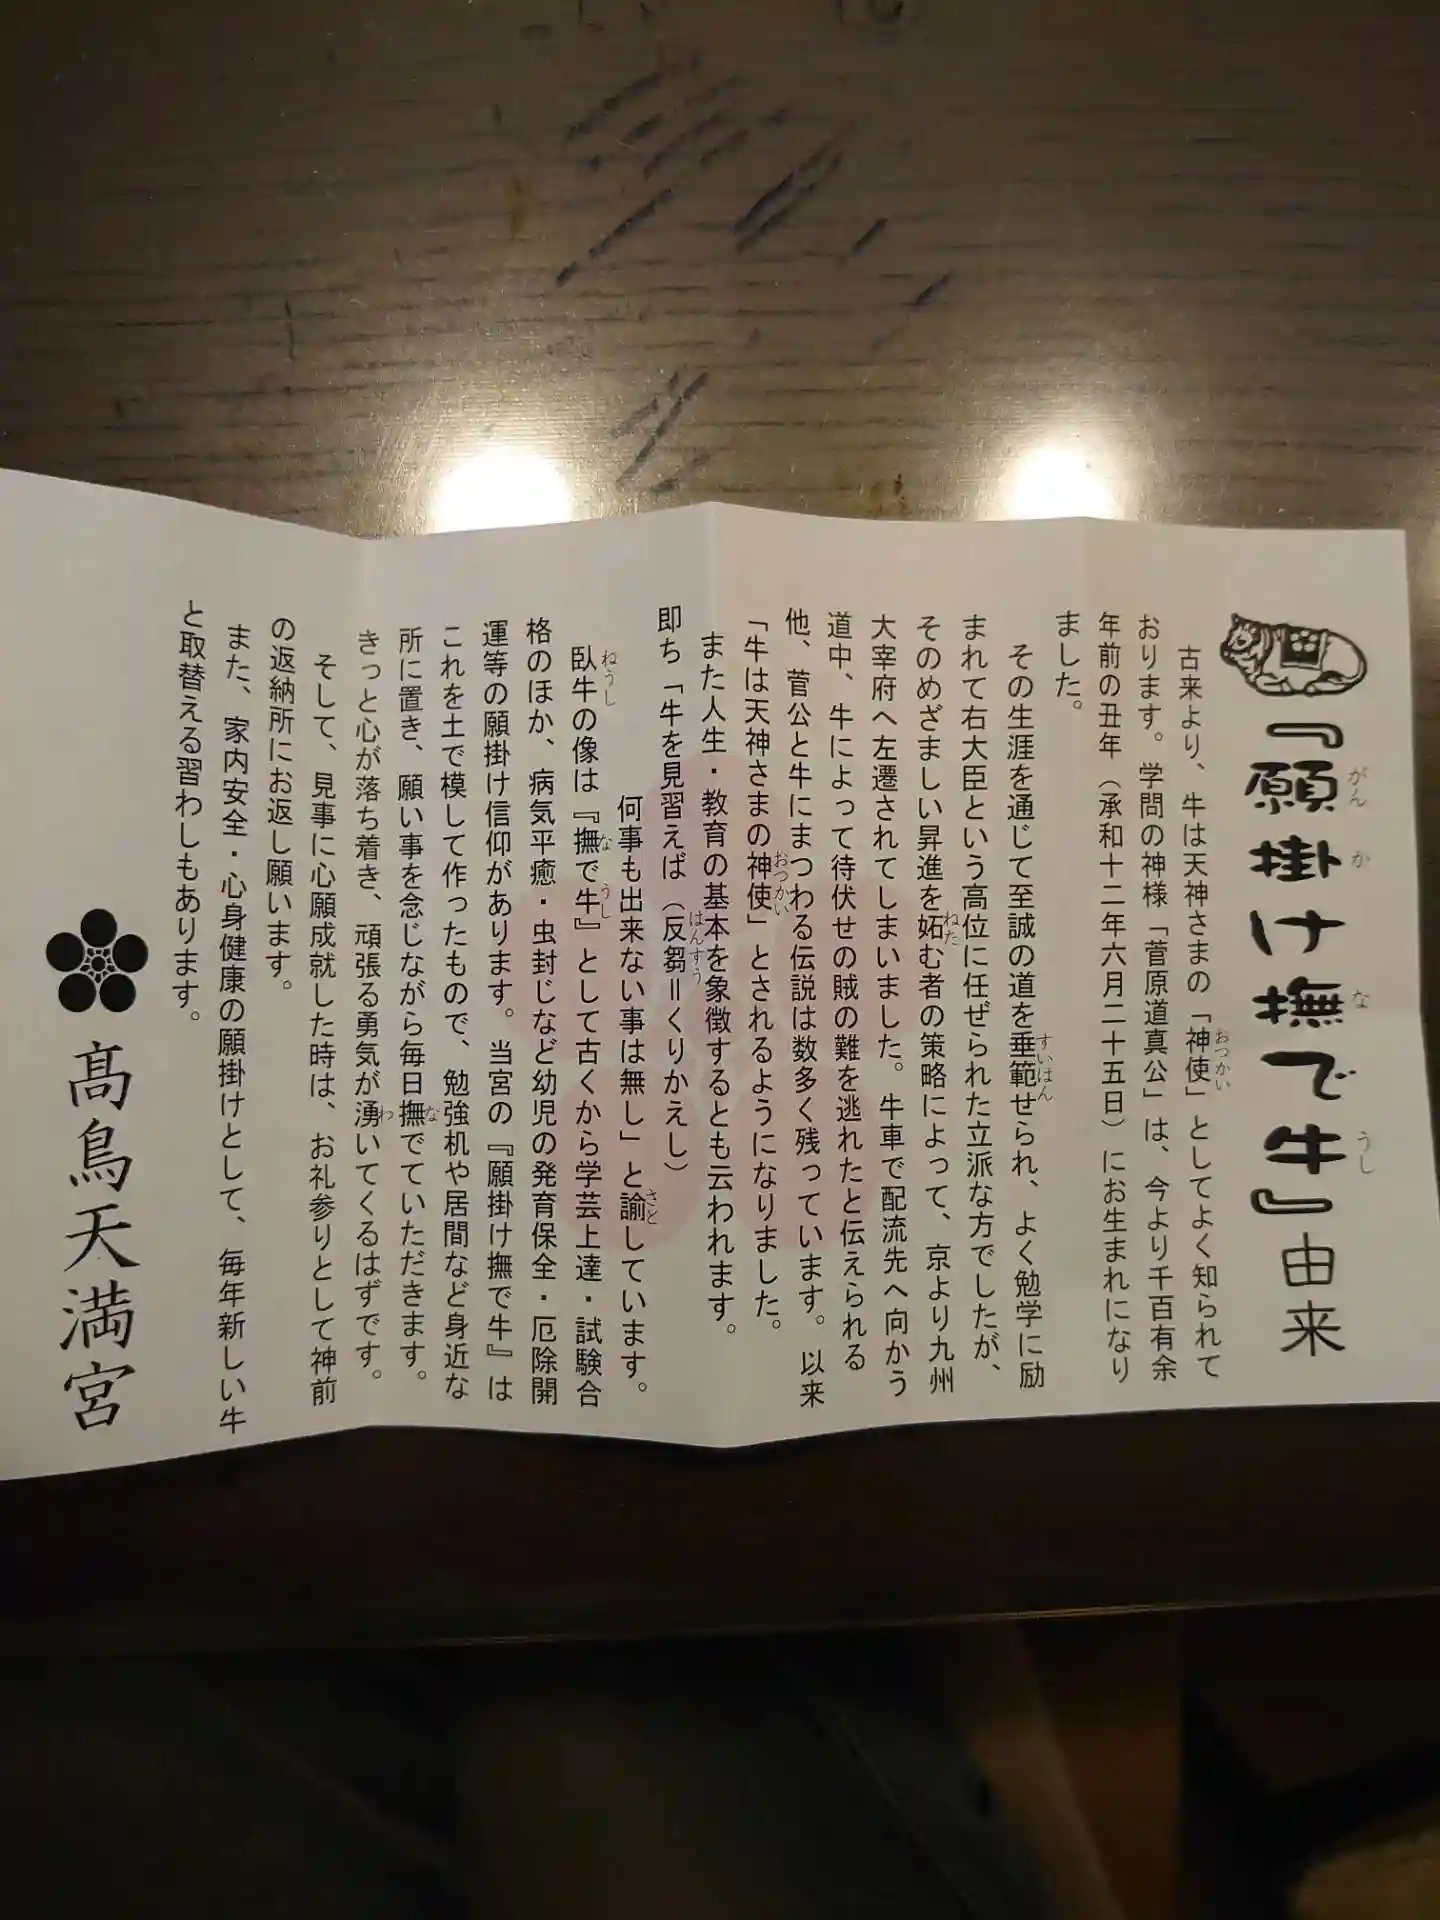 『願掛け撫で牛』由来
古来より、牛は天神さまの「神使」としてよく知られて
おります。学問の神様「菅原道真公」は、今より千百有余
年前の丑年（承和十二年六月二十五日）にお生まれになり
ました。
その生涯を通じて至誠の道を垂範せられ、よく勉学に励
まれて右大臣という高位に任ぜられた立派な方でしたが、
そのめざましい昇進を妬む者の策略によって、京より九州
大宰府へ左遷されてしまいました。牛車で配流先へ向かう
道中、牛によって待伏せの賊の難を逃れたと伝えられる
他、菅公と牛にまつわる伝説は数多く残っています。以来
「牛は天神さまの神使」とされるようになりました。
また人生・教育の基本を象徴するとも云われます。
即ち「牛を見習えば（反芻＝くりかえし）
何事も出来ない事は無し」と諭しています。
臥牛の像は『撫で牛』として古くから学芸上達・試験合
格のほか、病気平癒・虫封じなど幼児の発育保全・厄除開
運等の願掛け信仰があります。当宮の『願掛け撫で牛』は
これを土で模して作ったもので、勉強机や居間など身近な
所に置き、願い事を念じながら毎日撫でていただきます。
きっと心が落ち着き、頑張る勇気が湧いてくるはずです。
そして、見事に心願成就した時は、お礼参りとして神前
の返納所にお返し願います。
また、家内安全・心身健康の願掛けとして、毎年新しい牛
と取替える習わしもあります。
髙鳥天満宮